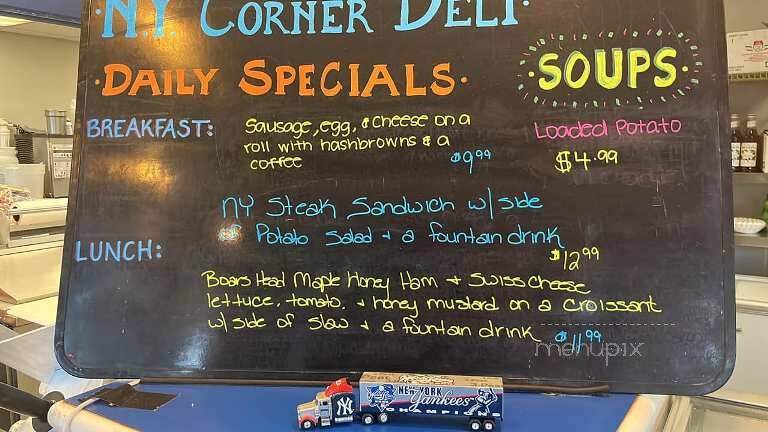 N.Y. CORNER DELI
DAILY SPECIALS.
SOUPS
BREAKFAST:
Sausage, egg, & cheese on a
roll with hashbrowns & a
coffee
$9.99
Loaded Potato
$4.99
NY Steak Sandwich w/ side
of Potato Salad + a fountain drink
$12.99
LUNCH:
Boars Head Maple Honey Ham + Swiss cheese
lettuce, tomato, + honey mustard on a croissant
w/ side of slaw + a fountain drink
$11.99
menupix
NY
NEW YORK
Yankees
CHAMPIONS